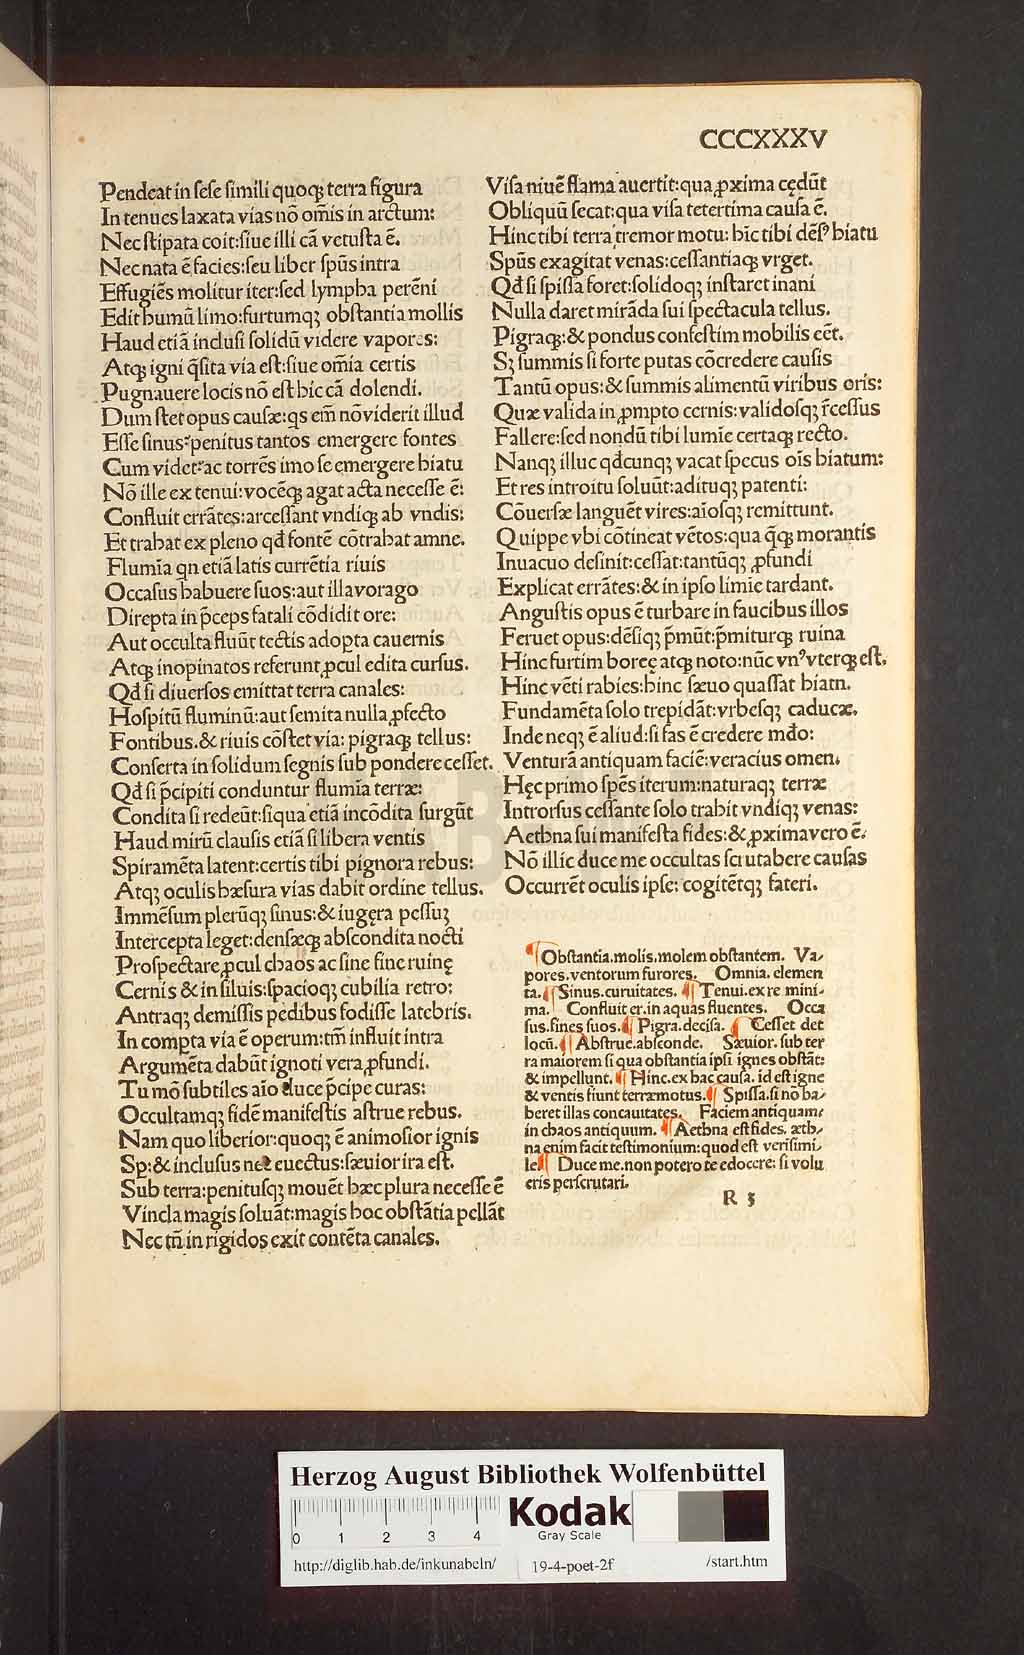 CCCXXXV
Pendeat in sese simili quoqꝫ terra figura
In tenues laxata vias nõ om̃is in arctum:
Nec stipata coit: siue illi cã vetusta ẽ.
Nec nata ẽ facies: seu liber sp̃us intra
Effugiẽs molitur iter: sed lympha perẽni
Edit humũ limo: furtumqꝫ obstantia mollis
Haud etiã inclusi solidũ videre vapores:
Atqꝫ igni q̃sita via est: siue om̃ia certis
Pugnauere locis nõ est hic cã dolendi.
Dum stet opus causæ: qs em̃ nõ viderit illud
Esse sinus penitus tantos emergere fontes
Cum videt ac torrẽs imo se emergere hiatu
Nõ ille ex tenui: vocẽqꝫ agat acta necesse ẽ:
Confluit errãtes: arcessant vndiqꝫ ab vndis:
Et trahat ex pleno qđ fontẽ cõtrahat amne.
Flumĩa qn etiã latis currẽtia riuis
Occasus habuere suos: aut illa vorago
Direpta in p̃ceps fatali cõdidit ore:
Aut occulta fluũt tectis adopta cauernis
Atqꝫ inopinatos referunt ꝓcul edita cursus.
Qđ si diuersos emittat terra canales:
Hospitũ fluminũ: aut semita nulla ꝓfecto
Fontibus. & riuis cõstet via: pigraqꝫ tellus:
Conserta in solidum segnis sub pondere cesset.
Qđ si p̃cipiti conduntur flumĩa terræ:
Condita si redeũt: siqua etiã incõdita surgũt
Haud mirũ clausis etiã si libera ventis
Spiramẽta latent: certis tibi pignora rebus:
Atqꝫ oculis hæsura vias dabit ordine tellus.
Immẽsum plerũqꝫ sinus: & iugęra pessuꝫ
Intercepta leget: densæqꝫ abscondita nocti
Prospectare ꝓcul chaos ac sine fine ruinę
Cernis & in siluis: spacioqꝫ cubilia retro:
Antraqꝫ demissis pedibus fodisse latebris.
In compta via ẽ operum: tm̃ influit intra
Argumẽta dabũt ignoti vera ꝓfundi.
Tu mõ subtiles aĩo duce p̃cipe curas:
Occultamqꝫ fidẽ manifestis astrue rebus.
Nam quo liberior: quoqꝫ ẽ animosior ignis
Sp: & inclusus nec euectus: sæuior ira est.
Sub terra: penitusqꝫ mouẽt hæc plura necesse ẽ
Vincla magis soluãt: magis hoc obstãtia pellãt
Nec tñ in rigidos exit contẽta canales.
Visa niuẽ flama auertit: qua ꝓxima cędũt
Obliquũ secat: qua visa tetertima causa ẽ.
Hinc tibi terra tremor motu: hĩc tibi dẽsꝰ hiatu
Sp̃us exagitat venas: cessantiaqꝫ vrget.
Qđ si spissa foret: solidoqꝫ instaret inani
Nulla daret mirãda sui spectacula tellus.
Pigraqꝫ: & pondus confestim mobilis eẽt.
Sꝫ summis si forte putas cõcredere causis
Tantũ opus: & summis alimentũ viribus oris:
Quæ valida in ꝓmpto cernis: validosqꝫ r̃cessus
Fallere: sed nondũ tibi lumĩe certaqꝫ recto.
Nanqꝫ illuc qđcunqꝫ vacat specus oĩs hiatum:
Et res introitu soluũt: adituqꝫ patenti:
Cõuersæ languẽt vires: aĩosqꝫ remittunt.
Quippe vbi cõtineat vẽtos: qua q̃qꝫ morantis
Inuacuo desinit: cessat: tantũqꝫ ꝓfundi
Explicat errãtes: & in ipso limĩe tardant.
Angustis opus ẽ turbare in faucibus illos
Feruet opus: dẽsiqꝫ p̃mũt: p̃miturqꝫ ruina
Hinc furtim boreę atqꝫ noto: nũc vnꝰ vterqꝫ est.
Hinc vẽti rabies: hinc sæuo quassat hiatn.
Fundamẽta solo trepidãt: vrbesqꝫ caducæ.
Inde neqꝫ ẽ aliud: si fas ẽ credere mđo:
Venturã antiquam faciẽ: veracius omen.
Hęc primo spẽs iterum: naturaqꝫ terræ
Introrsus cessante solo trahit vndiqꝫ venas:
Aethna sui manifesta fides: & ꝓxima vero ẽ.
Nõ illic duce me occultas scrutabere causas
Occurrẽt oculis ipse: cogitẽtqꝫ fateri.
¶ Obstantia. molis. molem obstantem. Va-
pores. ventorum furores. Omnia. elemen
ta. ¶ Sinus. curuitates. ¶ Tenui. ex re mini-
ma. Confluit er. in aquas fluentes. Occa
sus. fines suos. ¶ Pigra. decisa. ¶ Cesset det
locũ. ¶ Abstrue. absconde. Sæuior. sub ter
ra maiorem si qua obstantia ipsi ignes obstãt:
& impellunt. ¶ Hinc. ex hac causa. id est igne
& ventis fiunt terræmotus. ¶ Spissa. si nõ ha-
beret illas concauitates. Faciem antiquam:
in chaos antiquum. ¶ Aethna est fides. æth-
na enim facit testimonium: quod est verisimi-
le ¶ Duce me. non potero te edocere: si volu
eris perscrutari.
R 3
Herzog August Bibliothek Wolfenbüttel
0 1 2 3 4
Kodak
Gray Scale
http://diglib.hab.de/inkunabeln/ 19-4-poet-2f /start.htm